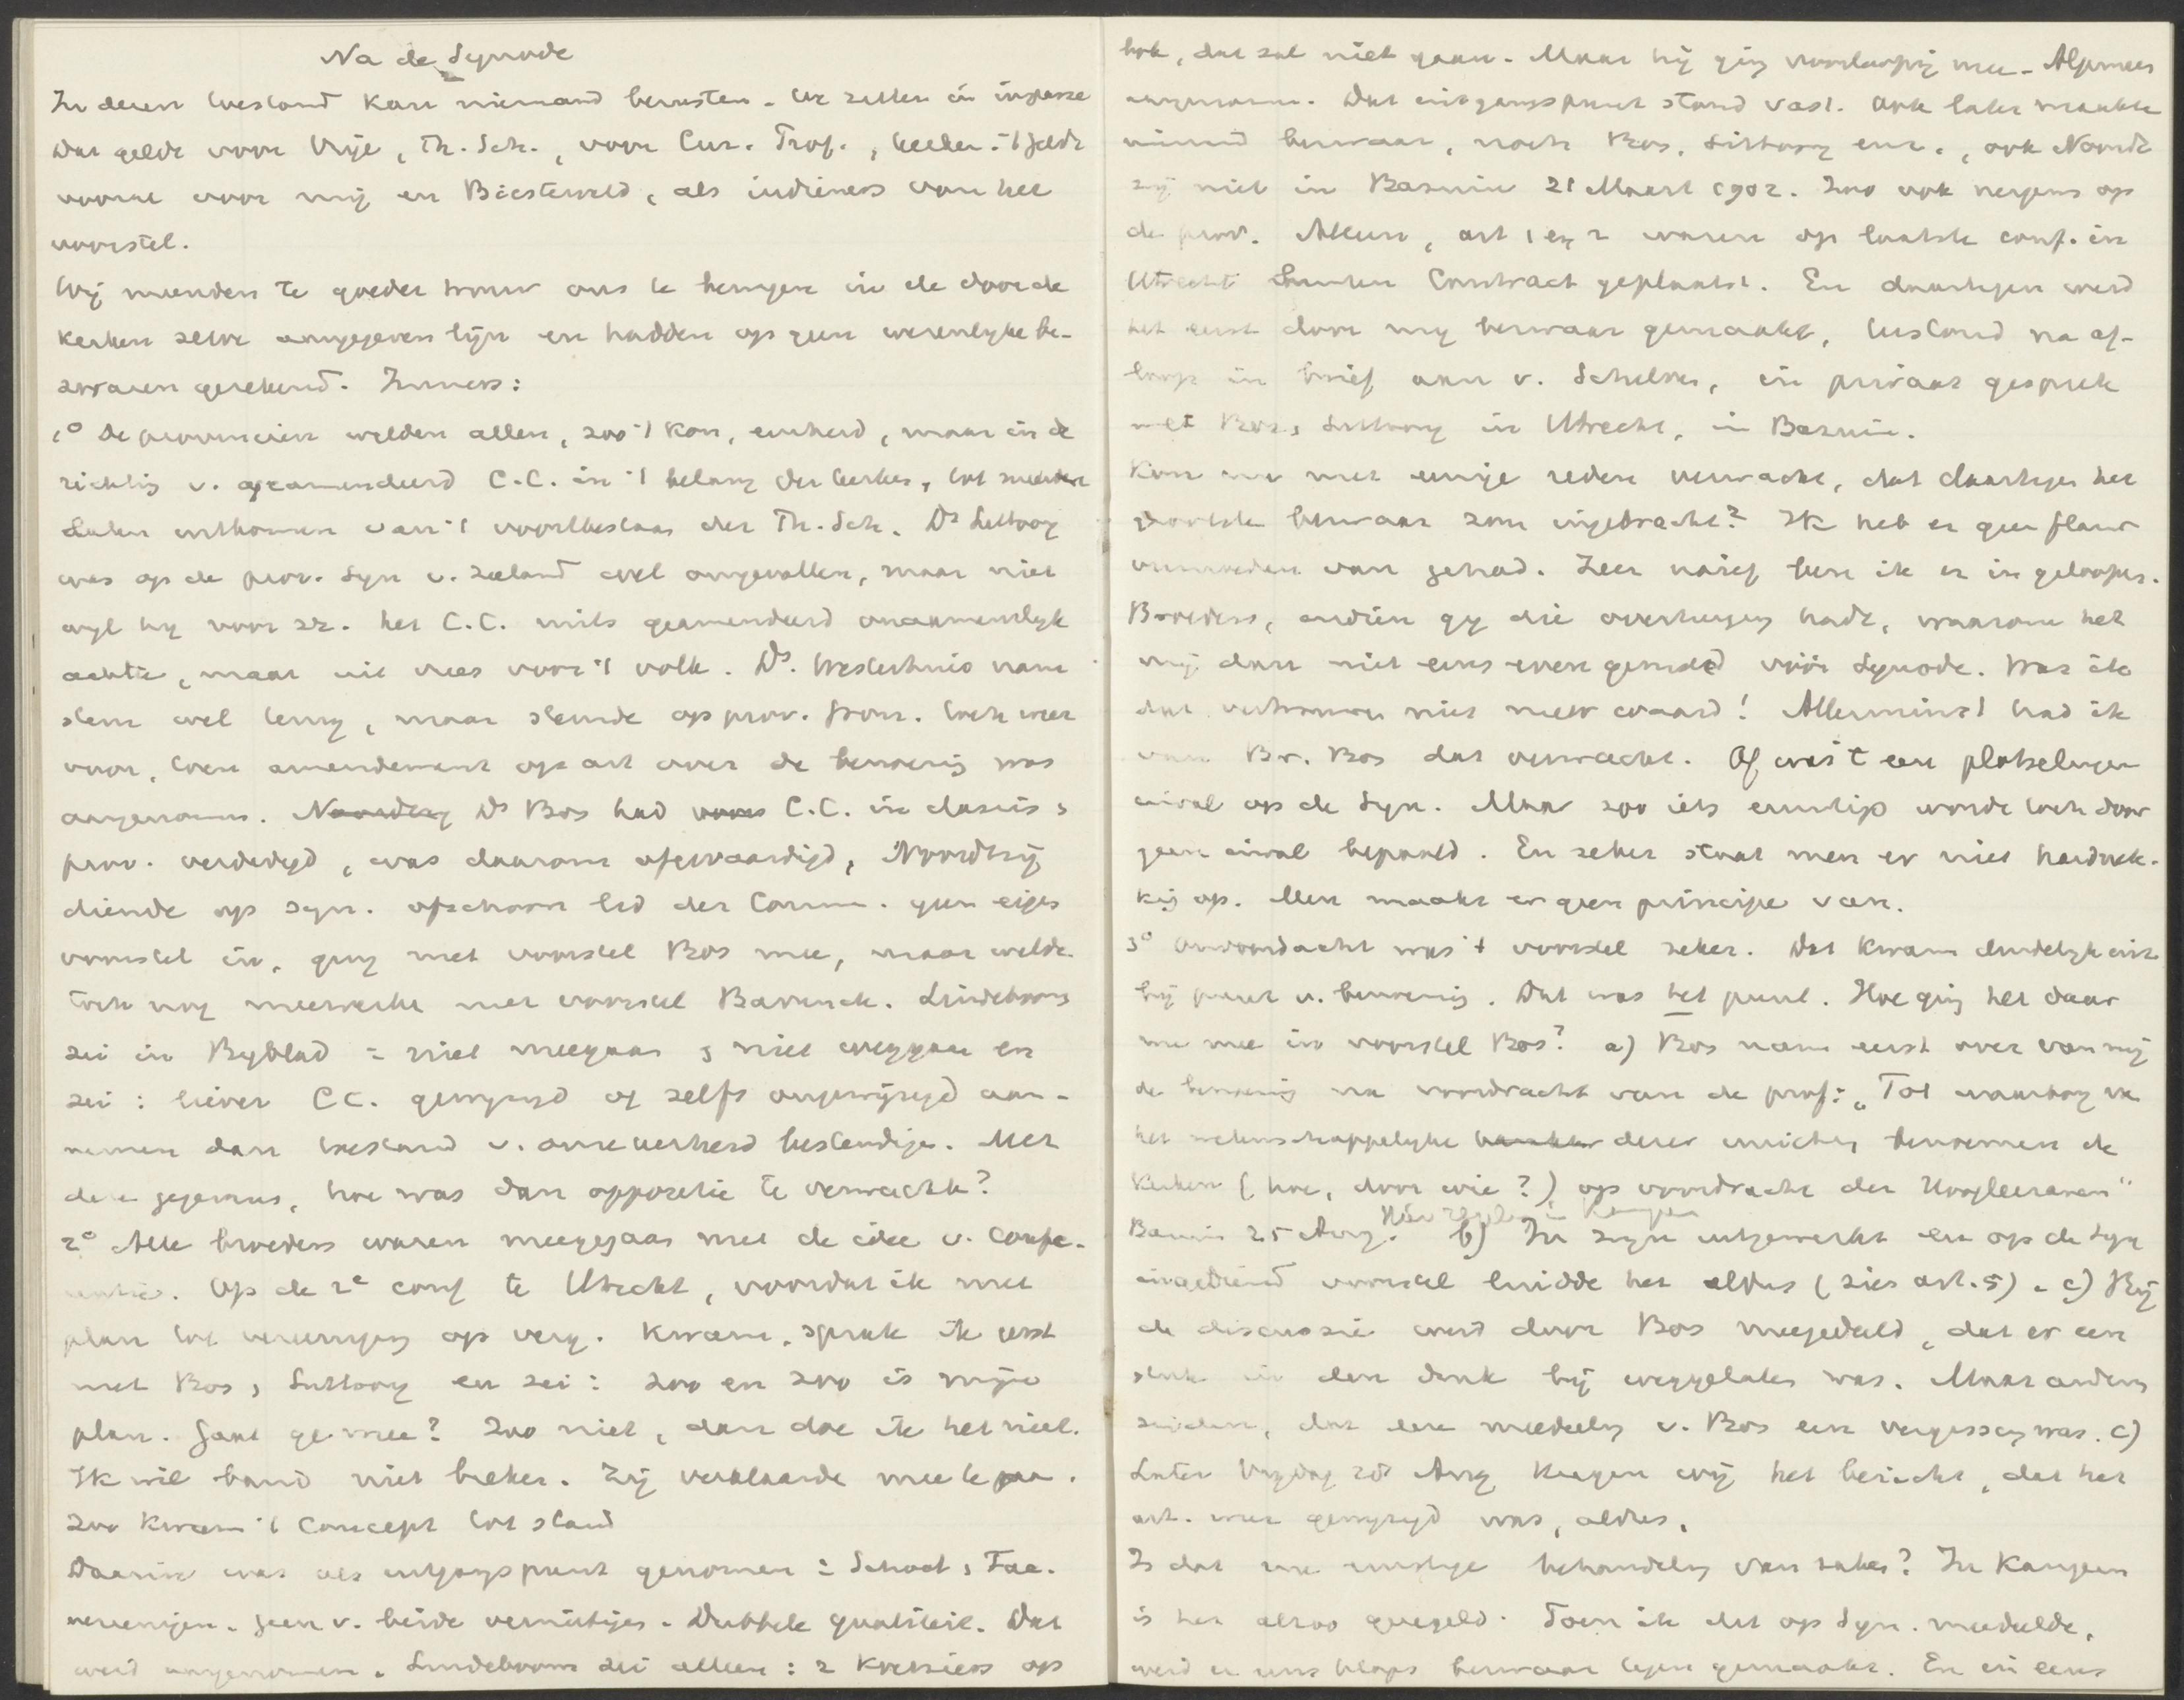 Na de Synode
In dezen toestand kan niemand berusten. We zitten in impasse
Dat geldt voor Vrije, Th. Sch., voor Cur. Prof., Kerken. 't geldt
vooral voor mij en Biesterveld, als indieners van het
voorstel.
Wij meenden te goeder trouw ons te bewegen in de door de
kerken zelve aangegeven lijn en hadden op geen wezenlijke be-
zwaren gerekend. Immers:
1° De provincien wilden allen, zoo 't kon, eenheid, maar in de
richting v. geamendeerd C.C. in 't belang der kerken, tot
van 't voortbestaan der Th. Sch. Ds Littooy
was op de prov. Syn v. Zeeland wel omgevallen, maar niet
wijl hij voor zz. het C.C. mits geamendeerd onaannemelijk
achtte, maar uit vrees voor 't volk. Ds. Westerhuis nam
stem wel terug, maar stemde op prov. Gron. toch weer
voor, toen amendement op art over de benoeming was
aangenomen. Noordtzij Ds Bos had voor C.C. in classis &
prov. verdedigd, was daarom afgevaardigd, Noordtzij
diende op syn. ofschoon lid der Comm. geen eigen
voorstel in, ging met voorstel Bos mee, maar wilde
toch nog meewerken met voorstel Bavinck. Lindeboom
zei in Bijblad = niet meegaan & niet weggaan en
zei: liever C.C. gewijzigd of zelfs ongewijzigd aan-
nemen dan toestand v. onzekerheid bestendigen. Met
deze gegevens, hoe was dan oppositie te verwachten?
2° Alle broeders waren meegegaan met de idee v. Confe-
rentie. Op de 2e conf te Utrecht, voordat ik met
plan tot vereeniging op verg. kwam, sprak ik eerst
met Bos, Littooy en zei: zoo en zoo is mijn
plan. Gaat ge mee? Zoo niet, dan doe ik het niet.
Ik wil band niet breken. Zij verklaarden mee te gaan.
Zoo kwam 't Concept tot stand
Daarin was als uitgangspunt genomen: School & Fac.
vereenigen. Geen v. beide vernietigen. Dubbele qualiteit. Dat
werd aangenomen. Lindeboom zei alleen: 2 op
hok, dat zal niet gaan. Maar hij ging voorloopig mee. Algemeen
aangenomen. Dat uitgangspunt stond vast. Ook later maakte
niemand bezwaar, noch Bos, Littooy enz., ook Noordt-
zij niet in Bazuin 21 Maart 1902. Zoo ook nergens op
de prov. Alleen, art 1 en 2 waren op laatste conf. in
Utrecht buiten Contract geplaatst. En daartegen werd
het eerst door mij bezwaar gemaakt, terstond na af-
loop in brief aan v. Schelven, in privaat gesprek
met Bos, Littooy in Utrecht, in Bazuin.
Kon nu met eenige reden verwacht, dat daartegen het
bezwaar zou ingebracht? Ik heb er geen flauw
vermoeden van gehad. Zeer naief ben ik er in geloopen.
Broeders, indien gij die overtuiging hadt, waarom het
mij dan niet eens even gemeld vóór Synode. Was ik
dat vertrouwen niet meer waard! Allerminst had ik
van Br. Bos dat verwacht. Of was 't een plotselingen
inval op de Syn. Maar zoo iets ernstigs worde toch door
geen inval bepaald. En zeker staat men er niet hardnek-
kig op. Men maakt er geen principe van.
3° Onvoordacht was 't voorstel zeker. Dat kwam duidelijk uit
bij punt v. benoeming. Dat was het punt. Hoe ging het daar
nu mee in voorstel Bos? a) Bos nam eerst over van mij
de benoeming na voordracht van de prof: „Tot waarborg van
het wetenschappelijke dezer inrichting benoemen de
Kerken (hoe, door wie?) op voordracht der Hoogleeraren"
Bazuin 25 Aug. b) In zijn uitgewerkt en op de Syn
ingediend voorstel luidde het aldus (zies art. 5). c) Bij
de discussie werd door Bos meegedeeld, dat er een
stuk in den druk bij weggelaten was. Maar anderen
zeiden, dat die mededeeling v. Bos een vergissing was. c)
Later Vrijdag Aug kregen wij het bericht, dat het
art. weer gewijzigd was, aldus.
Is dat nu ernstige behandeling van zaken? In Kampen
is het alzoo geregeld. Toen ik dit op Syn. meedeelde,
werd er bezwaar tegen gemaakt. En in eens